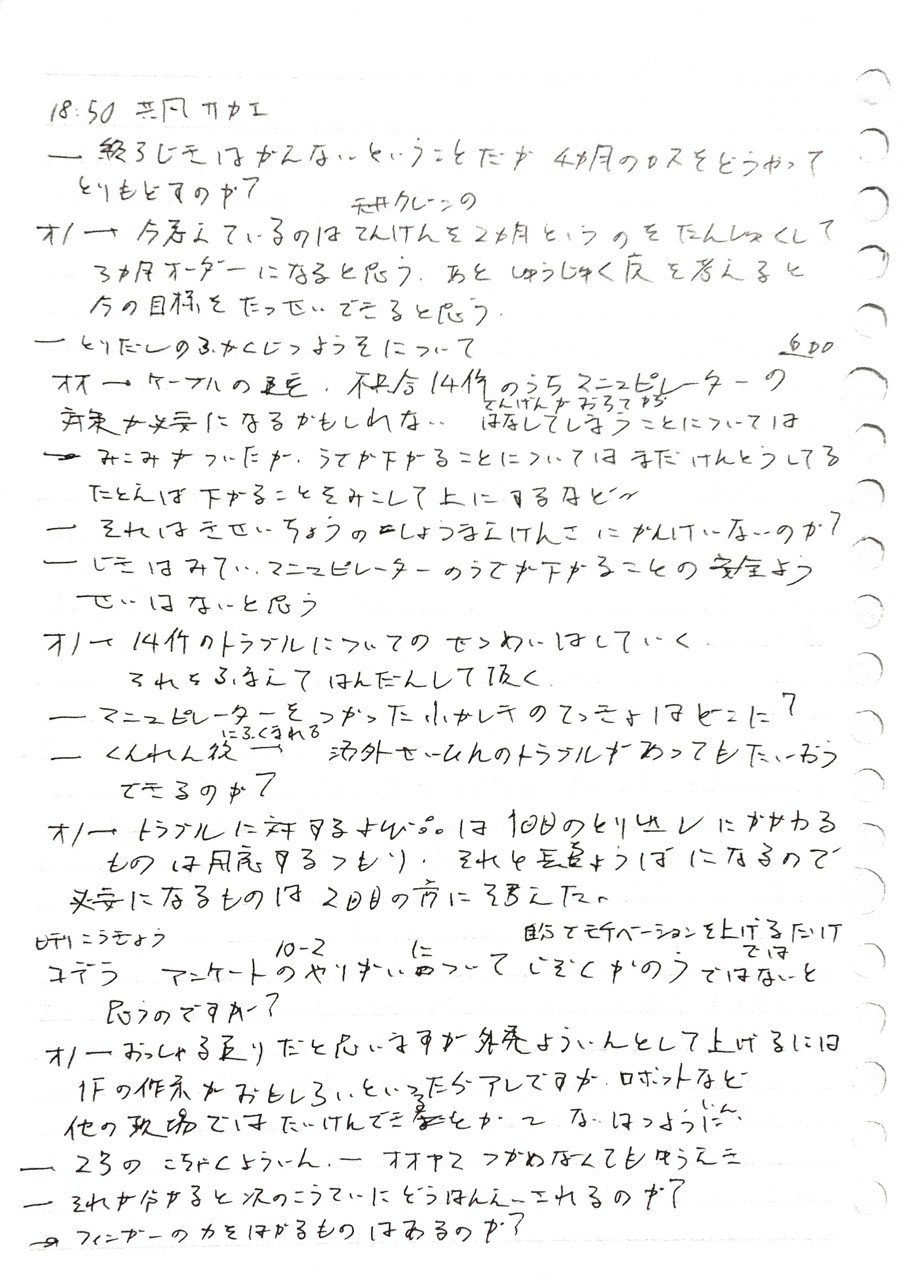 18:50 共同 カカエ
― 終るじきはかえないということだが 4カ月のロスをどうやって
とりもどすのか?
天井クレーンの
オノ→ 今考えているのはてんけんを2カ月というのをたんしゅくして
3カ月オーダーになると思う. あと しゅうじゅく度を考えると
今の目標をたっせいできると思う.
― とりだしのふかくじつようそについて
600
オオ → ケーブルの 不具合14件のうちマニュピレーターの
てんげんがおちてから
対策が必要になるかもしれない. はなしてしまうことについては
→ みこみがついたが. うでが下がることについてはまだけんとうしてる
たとえば下がることをみこして上にするなど〜
― それはきせいちょうのしようまえけんさにかんけいないのか?
― じきはみてい. マニュピレーターのうでが下がることの安全よう
せいはないと思う
オノ→ 14件のトラブルについてのせつめいはしていく.
それをふまえてはんだんして頂く.
― マニュピレーターをつかった小かレキのてっきょはどこに?
にふくまれる
― くんれん後 → 海外せいひんのトラブルがあってもたいおう
できるのか?
オノ→ トラブルに対するよび品は1回目のとり出しにかかわる
ものは用意するつもり. それと ようばになるので
必要になるものは2回目の方に考えた。
日刊こうぎょう
自分でモチベーションを上げるだけ
10-2 に では
コデラ アンケートのやりがいついて じぞくかのうではないと
思うのですか?
オノ― おっしゃる通りだと思いますが 外発よういんとして上げるには
1Fの作業がおもしろいといったらアレですが. ロボットなど
他の現場ではたいけんできることがつ ないはつようにいん.
― 2号の こちゃくよういん. ― オオヤマ つかめなくてもゆうえき
― それが分かると次のこうていにどうはんえーされるのか?
→ フィンガーの力をはかるものはあるのか?